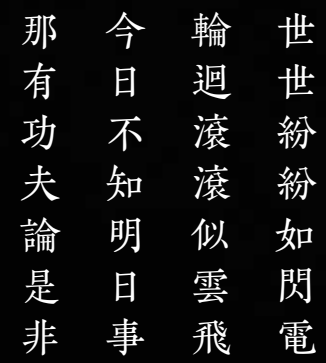 世世紛紛如閃電
輪迴滾滾似雲飛
今日不知明日事
那有功夫論是非